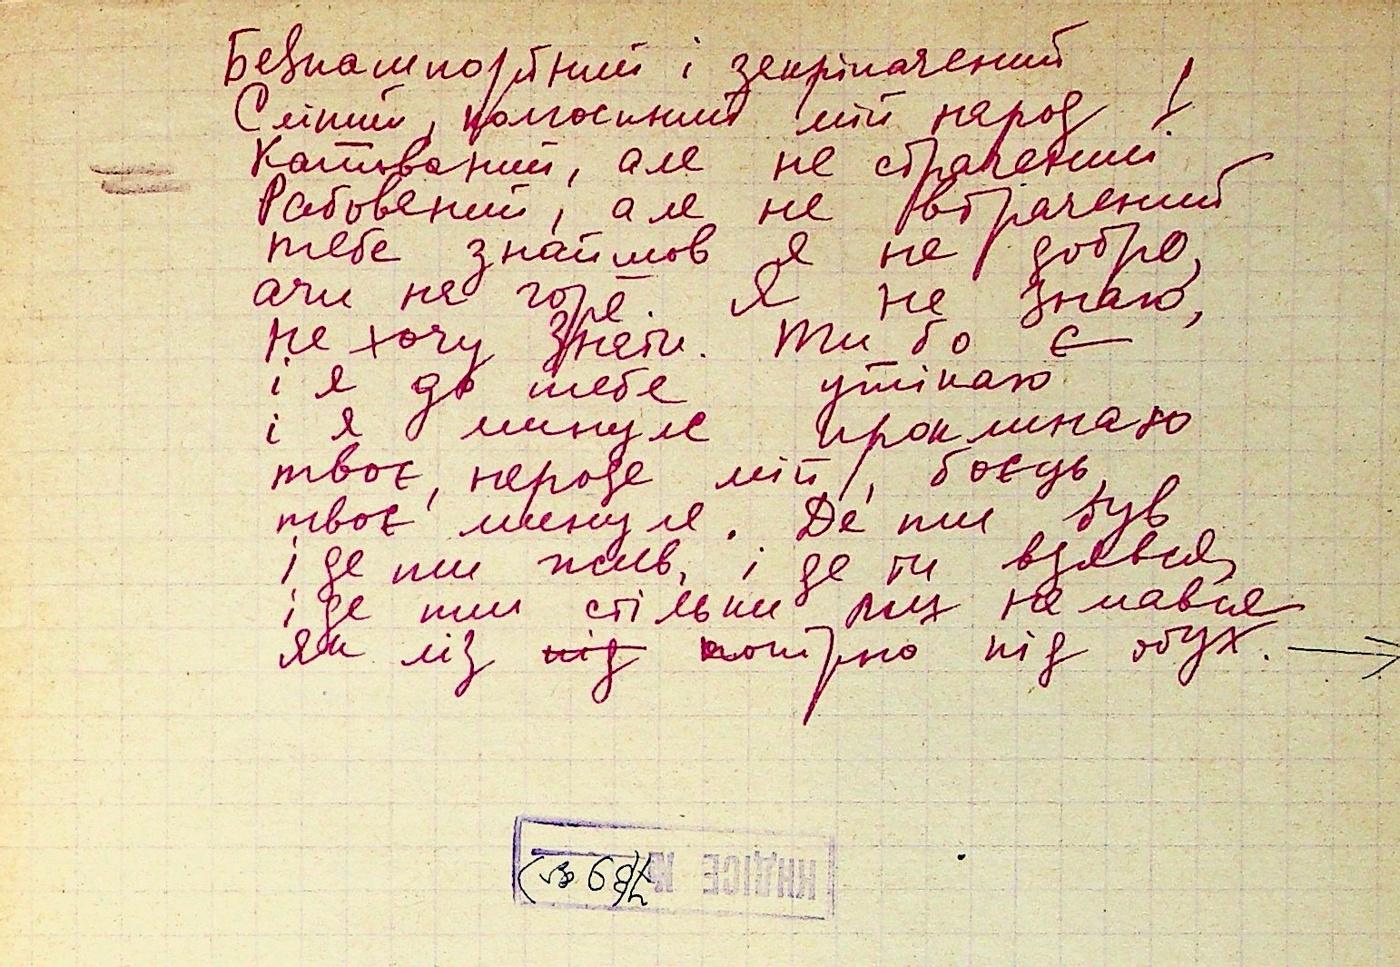 Безпашпортний і закріпачений
Сліпий, колгоспний мій народ!
Катований, але не страчений
Рабований, але не втрачений
тебе знайшов я не добро,
ачи на горе. Я не знаю,
не хочу знати. Ти бо є —
і я до тебе утікаю
і я минуле проклинаю
твоє, народе мій, боєць,
твоє минуле. Де ти був
і де ти жив, і де ти взявся,
і де ти стільки
як ліз під покірно під обух. →